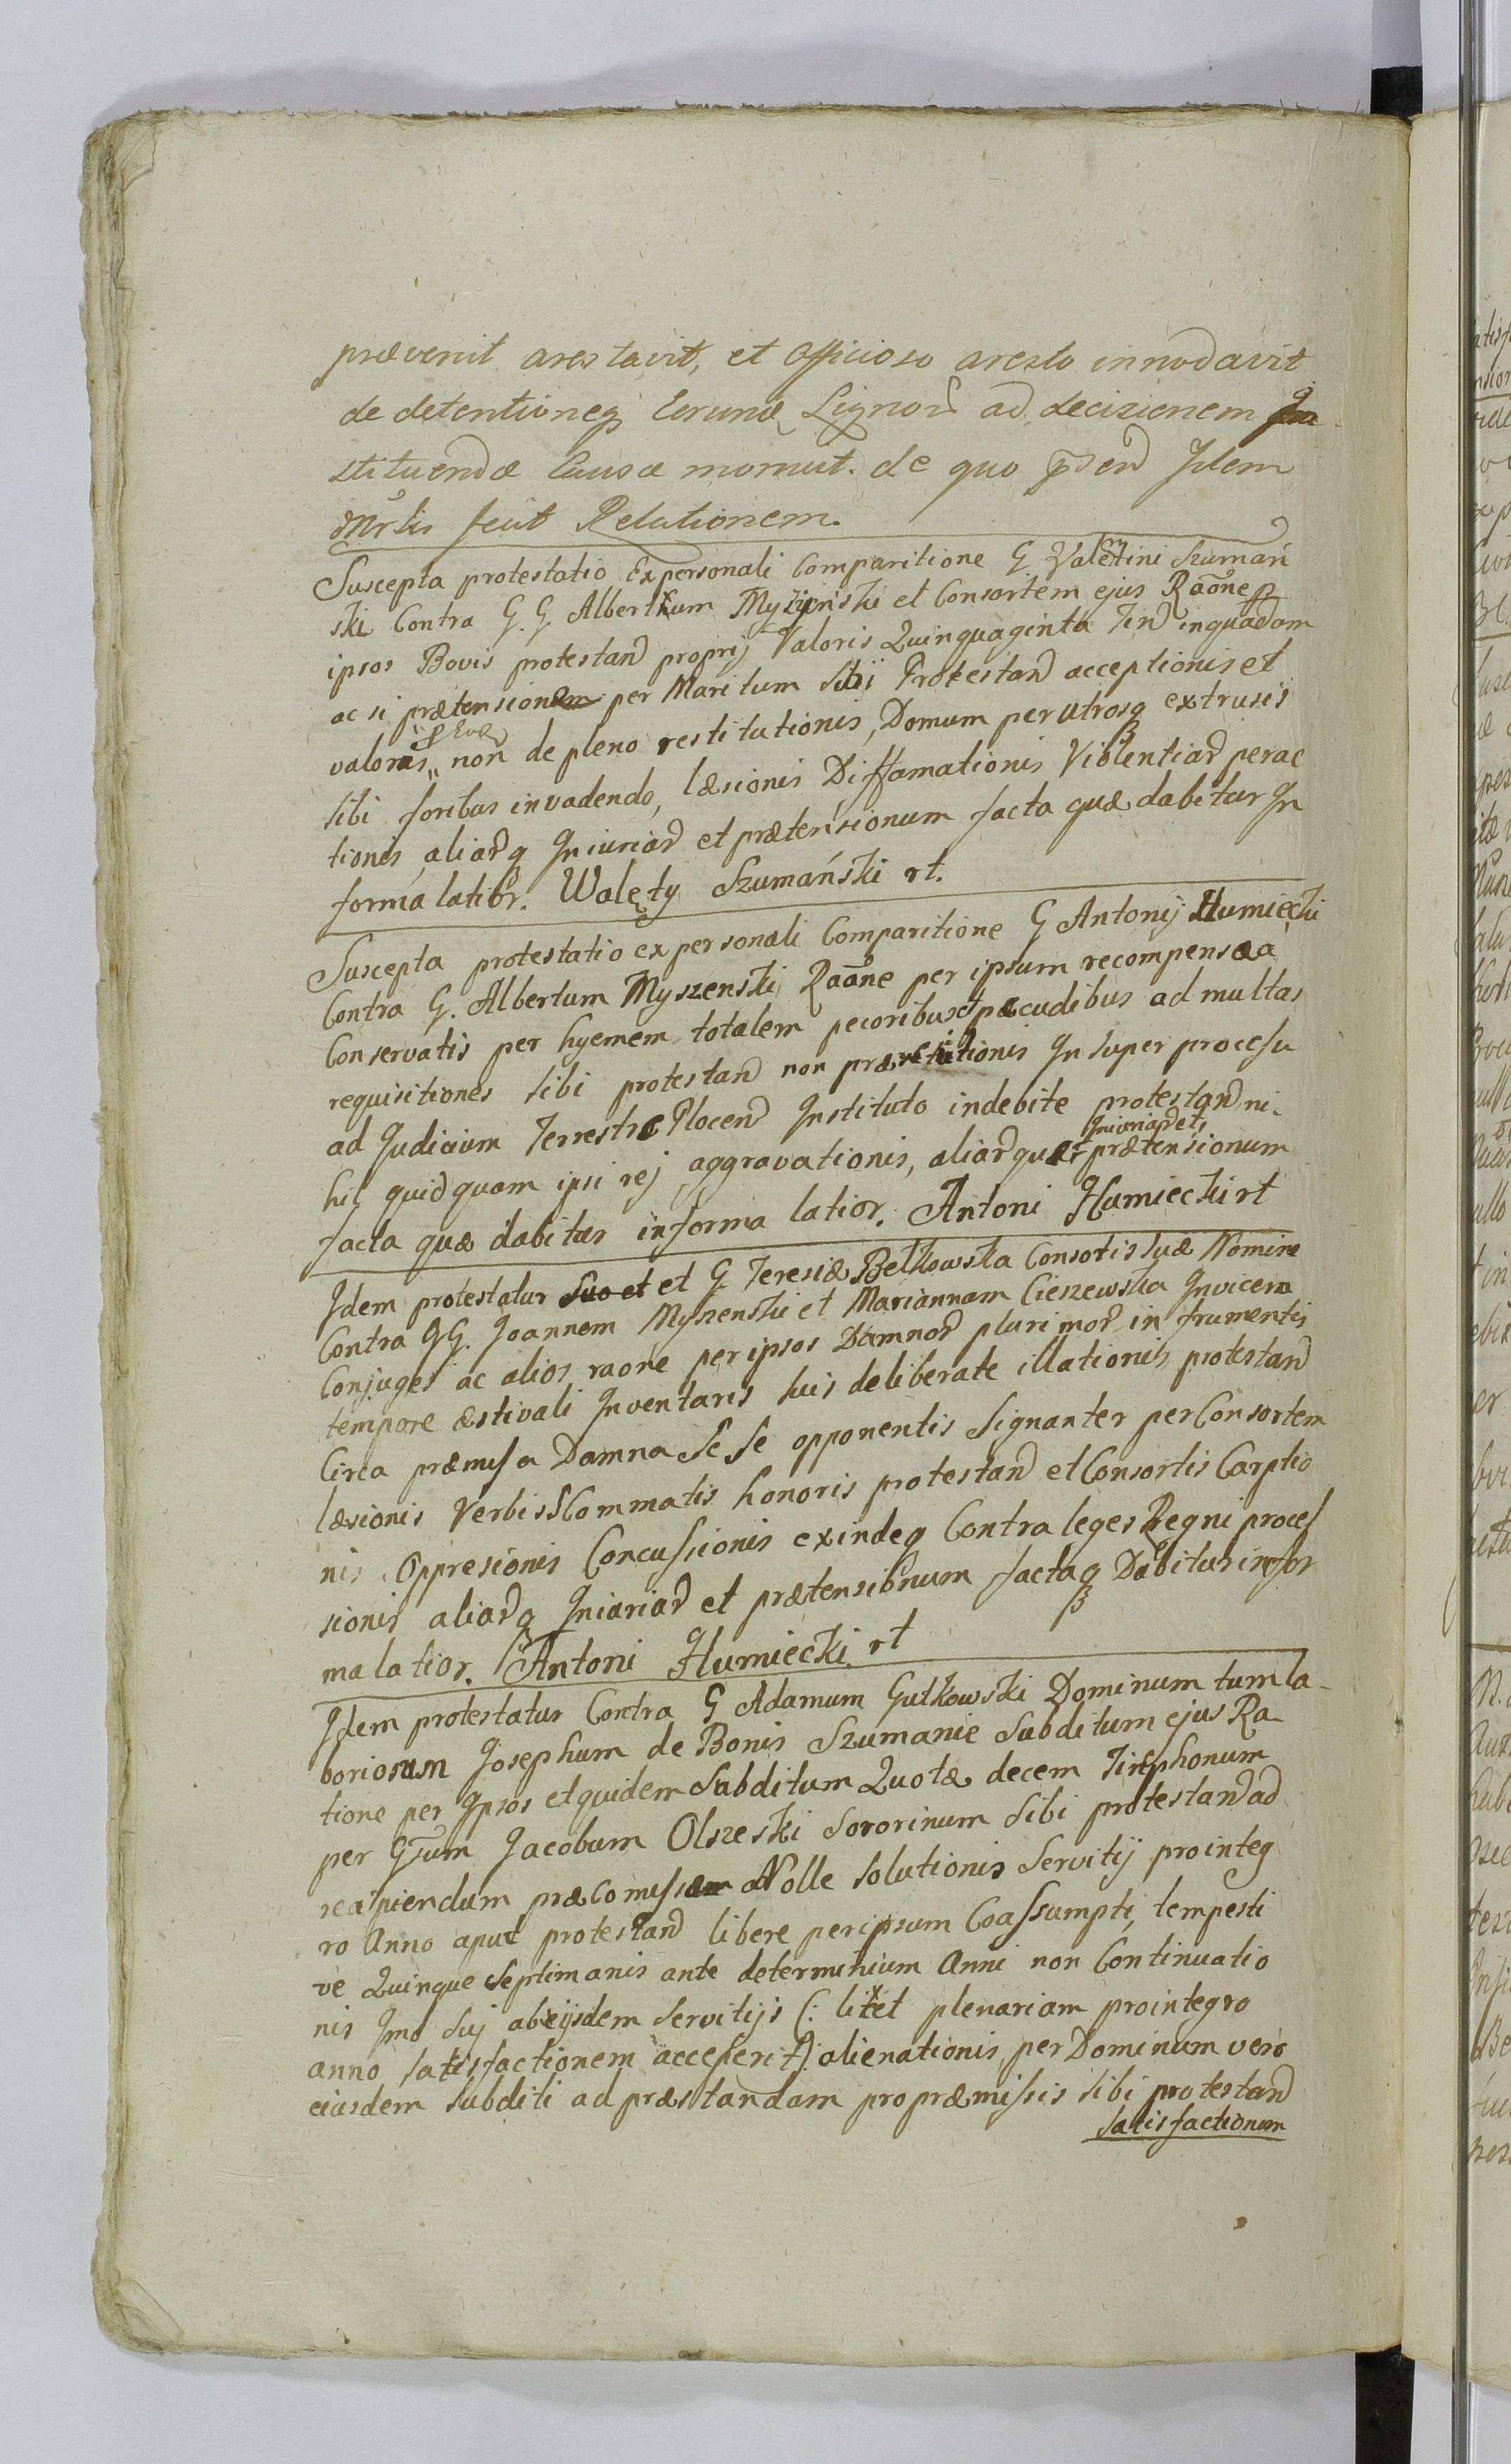 prævenit arestavit, et Officioso aresto innodavit
de detentioneq Eorund Lignor ad decisionem In
stituendæ Causæ monuit. de quo Idem
Mrlis fecit Relationem.
Suscepta protestatio Ex personali Comparitione G Valentini Szumań
ski Contra G. G. Albertum Myszyński et Consortem ejus Raõne p
ipsos Bovis protestand proprij Valoris Quinquaginta Tin inquadam
ac si prætensionem per Maritum Sibi Protestand acceptionis et
valoris p Eva non de pleno restitutionis, Domum per utrosq extrusis
sibi foribus invadendo, læsionis Diffamationis Violentiar perac
tionis, aliarq Iniuriar et prætensionum facta quæ dabitur In
forma latior. Walęty Szumański rt.
Suscepta protestatio ex personali Comparitione G Antonij Humiecki
Contra G. Albertum Myszenski Raõne per ipsum recompensæ a
Conservatis per hyemem totalem pecoribus et pecudibus ad multas
requisitiones sibi protestand non Insuper processu
ad Judicium Terrestre Plocen Instituto indebite protestand ni-
hil quidquam ipsi rej aggravationis, aliarque Iniuriar et prætensionum
facta quæ dabitur in forma latior. Antoni Humiecki rt
Idem protestatur Suo et et G. Teresiæ Betkowska Consotis suæ Nomine
Contra GG. Joannem Myszenski et Mariannam Cieszewska Invicem
Conjuges ac alios raone per ipsos Damnor plurimor in frumentis
tempore æstivali Inventaris suis deliberate illationis protestand
Circa præmissa Damna Se Se opponentis Signanter per Consortem
læsionis Verbis SCommatis honoris protestand et Consortis Carptio
nis Oppresionis Concussionis exindeq Contra leges Regni proces
sionis aliarq Iniuriar et prætensionum factaq Dabitur in for
ma latior. Antoni Humiecki rt
Idem protestatur Contra G Adamum Gutkowski Dominum tum la-
boriosum Josephum de Bonis Szumanie Subditum ejus Ra-
tione per Ipsos et quidem Subditum Quotæ decem Tinphonum
per Gsum Jacobum Olszeski Sororinum Sibi protestand ad
reaspiendum præComissæ Nolle Solutionis Servitij pro integ
ro Anno aput protestand libere per ipsum Coassumpti, tempesti
ve Quinque Septimanis ante determinium Anni non Continuatio
nis Imo Sui ab eijsdem Servitijs (: licet plenariam pro integro
anno satisfactionem acceperit :) alienationis, per Dominum vero
eiusdem Subditi ad præstandam pro præmissis sibi protestand
satisfactionum